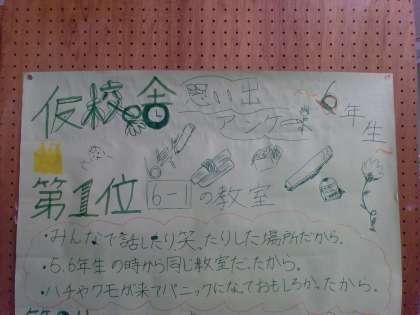 仮校舎 思い出アンケート 6年生
第1位 6-1の教室
・みんなで話したり笑ったりした場所だから。
・5.6年生の時から同じ教室だったから。
・ハチやクモが来てパニックになっておもしろかったから。